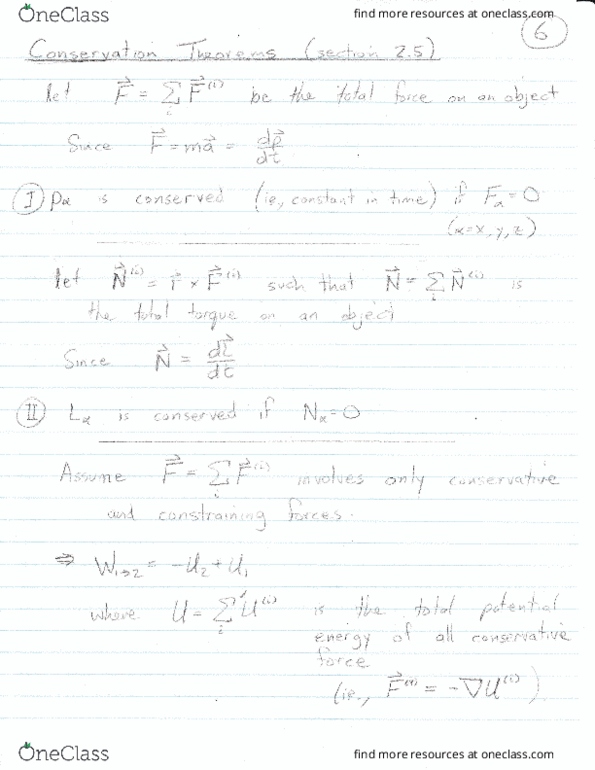 OneClass
find more resources at oneclass.com
6
Conservation Theorems (section 2.5)
let F⃗ = Σᵢ F⃗⁽ⁱ⁾ be the total force on an object
Since F⃗ = ma⃗ = dp⃗/dt
I pα is conserved (ie, constant in time) if Fα = 0
(α = x, y, z)
let N⃗⁽ⁱ⁾ = r⃗ × F⃗⁽ⁱ⁾ such that N⃗ = Σᵢ N⃗⁽ⁱ⁾ is
the total torque on an object
Since N⃗ = dL⃗/dt
II Lα is conserved if Nα = 0
Assume F⃗ = Σᵢ F⃗⁽ⁱ⁾ involves only conservative
and constraining forces.
⇒ W₁→₂ = -U₂ + U₁
where U = Σᵢ U⁽ⁱ⁾ is the total potential
energy of all conservative
force
(ie., F⃗⁽ⁱ⁾ = -∇U⁽ⁱ⁾)
OneClass
find more resources at oneclass.com